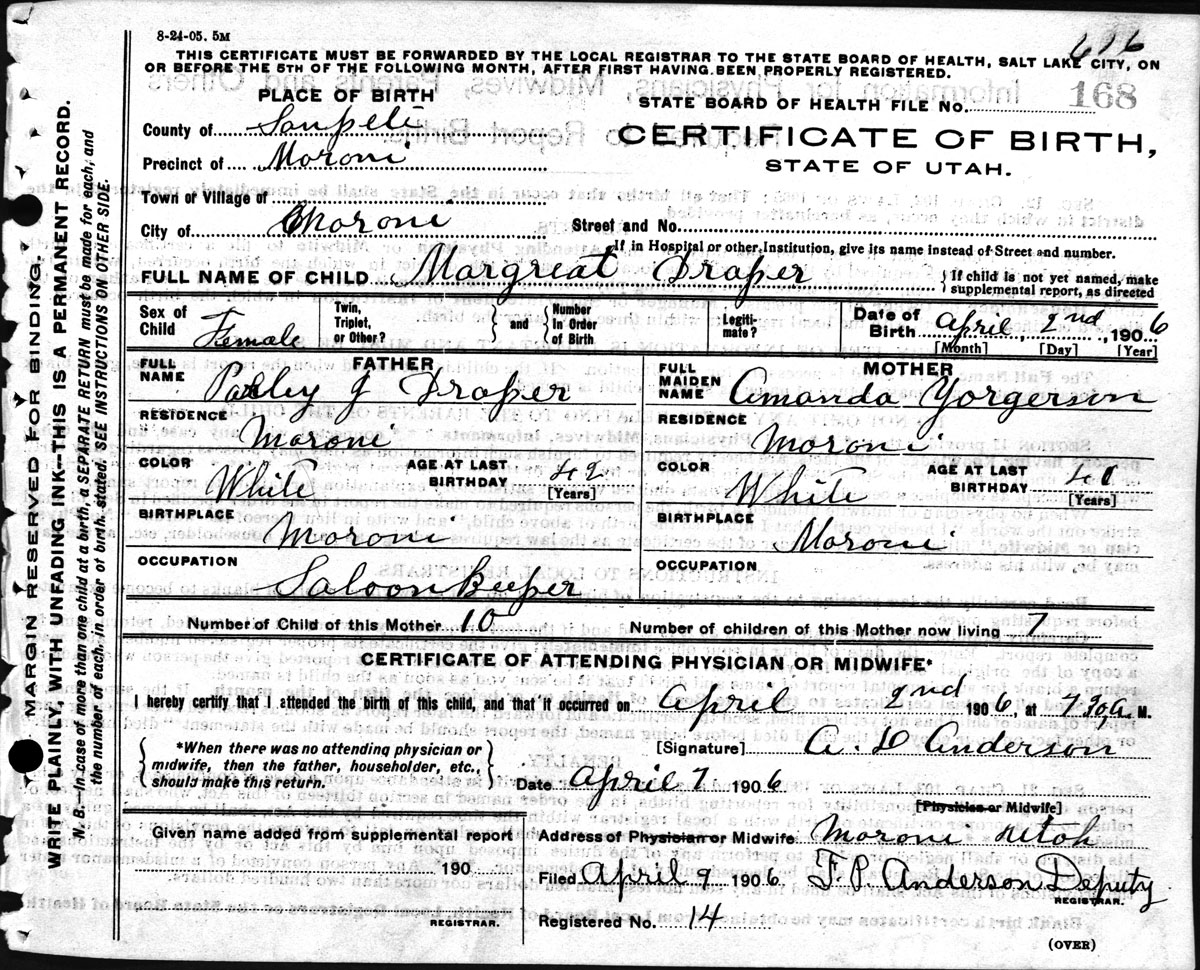 8-24-05. 5M
616
THIS CERTIFICATE MUST BE FORWARDED BY THE LOCAL REGISTRAR TO THE STATE BOARD OF HEALTH, SALT LAKE CITY, ON
OR BEFORE THE 5TH OF THE FOLLOWING MONTH, AFTER FIRST HAVING BEEN PROPERLY REGISTERED.
PLACE OF BIRTH
STATE BOARD OF HEALTH FILE NO. 168
County of Sanpete
CERTIFICATE OF BIRTH,
Precinct of Moroni
STATE OF UTAH.
Town or Village of
City of Moroni Street and No.
If in Hospital or other Institution, give its name instead of Street and number.
FULL NAME OF CHILD Margreat Draper { If child is not yet named, make supplemental report, as directed
Sex of Child Female Twin, Triplet, or Other? { and { Number In Order of Birth Legiti-mate? Date of Birth April 2nd, 1906
[Month] [Day] [Year]
FATHER
FULL NAME Parley J Draper
RESIDENCE
Moroni
COLOR White AGE AT LAST BIRTHDAY 42 [Years]
BIRTHPLACE
Moroni
OCCUPATION
Saloon Keeper
MOTHER
FULL MAIDEN NAME Amanda Yorgerson
RESIDENCE
Moroni
COLOR White AGE AT LAST BIRTHDAY 40 [Years]
BIRTHPLACE
Moroni
OCCUPATION
Number of Child of this Mother 10 Number of children of this Mother now living 7
CERTIFICATE OF ATTENDING PHYSICIAN OR MIDWIFE*
I hereby certify that I attended the birth of this child, and that it occurred on April 2nd 1906, at 7 30 A. M.
{ *When there was no attending physician or midwife, then the father, householder, etc., should make this return. }
[Signature] A. D Anderson
Date April 7 1906
[Physician or Midwife]
Given name added from supplemental report
190
REGISTRAR.
Address of Physician or Midwife Moroni Utah
Filed April 9 1906 F. P. Anderson Deputy
REGISTRAR.
Registered No. 14
(OVER)
MARGIN RESERVED FOR BINDING.
WRITE PLAINLY, WITH UNFADING INK—THIS IS A PERMANENT RECORD.
N. B.—In case of more than one child at a birth, a SEPARATE RETURN must be made for each, and
the number of each, in order of birth, stated. SEE INSTRUCTIONS ON OTHER SIDE.